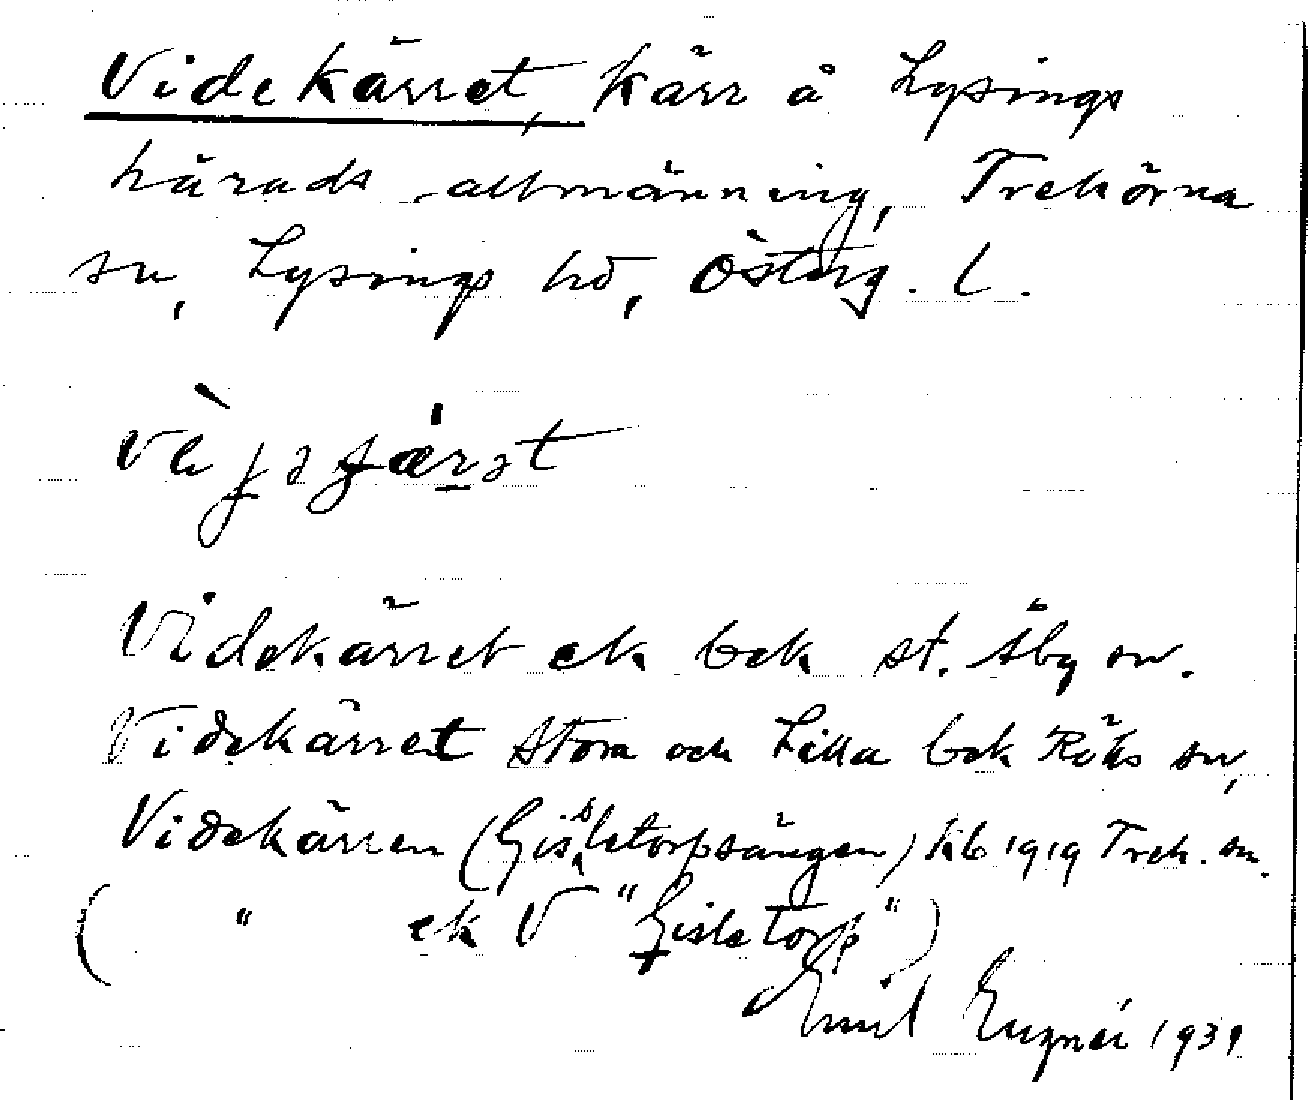 Videkärret, kärr å Lysings
härads allmänning, Trehörna
sn, Lysings hd, Österg. l.
Videkärret ek bek st. Åby sn.
Videkärret Stora och Lilla bek Röks sn,
Videkärren (Gisletorpsängen) hkb 1919 Treh. sn.
( " ek V "Gisletorp" )
Emil 1939